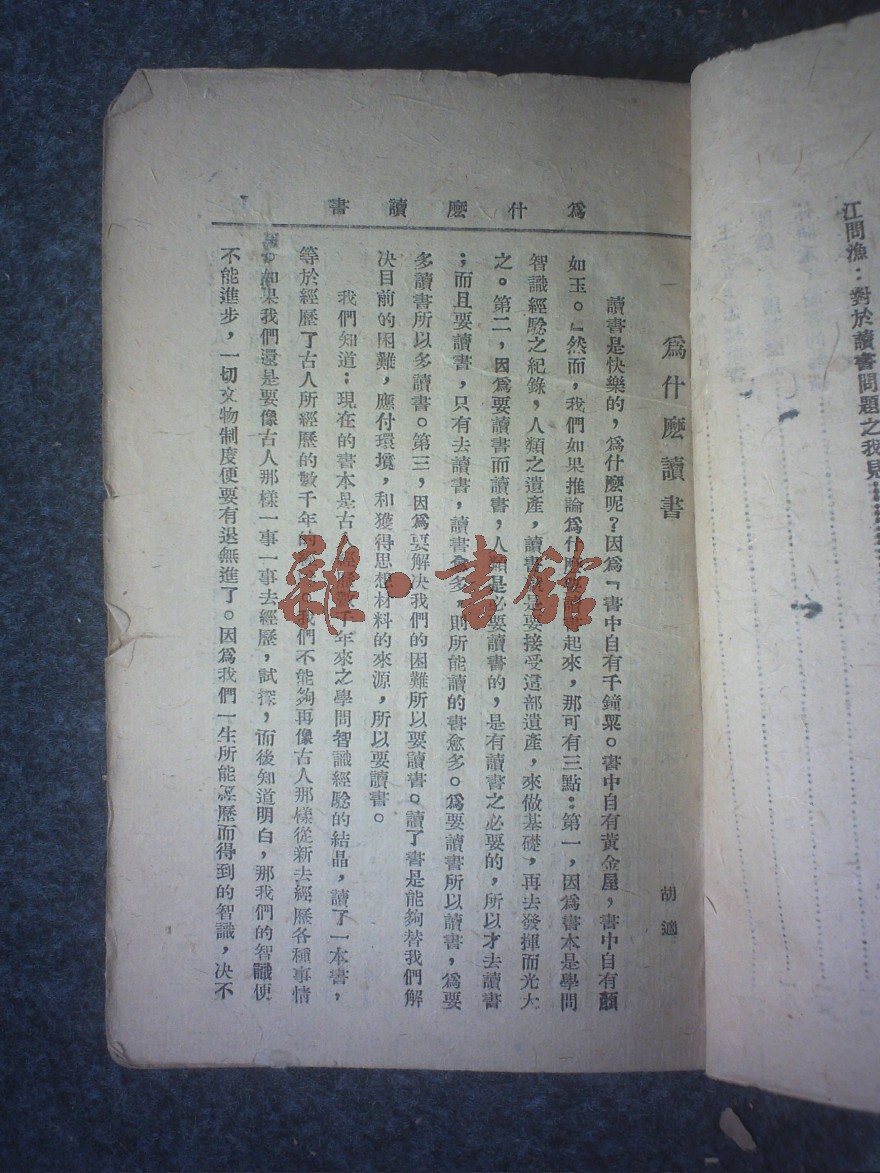 江問漁：對於讀書問題之我見
為什麼讀書
一　為什麼讀書
胡適
讀書是快樂的，為什麼呢？因為『書中自有千鐘粟。書中自有黃金屋，書中自有顏
如玉。』然而，我們如果推論為什麼要讀書起來，那可有三點：第一，因為書本是學問
智識經騐之紀錄，人類之遺產，讀書就是要接受這部遺產，來做基礎，再去發揮而光大
之。第二，因為要讀書而讀書，人類是必要讀書的，是有讀書之必要的，所以才去讀書
；而且要讀書，只有去讀書，讀書愈多，則所能讀的書愈多。為要讀書所以讀書，為要
多讀書所以多讀書。第三，因為要解決我們的困難所以要讀書。讀了書是能夠替我們解
决目前的困難，應付環境，和獲得思想材料的來源，所以要讀書。
我們知道；現在的書本是古人經年來之學問智識經騐的結晶，讀了一本書，
等於經歷了古人所經歷的數千年的我們不能夠再像古人那樣從新去經歷各種事情
。如果我們還是要像古人那樣一事一事去經歷，試探，而後知道明白，那我們的智識便
不能進步，一切文物制度便要有退無進了。因為我們一生所能經歷而得到的智識，决不
雜·書館